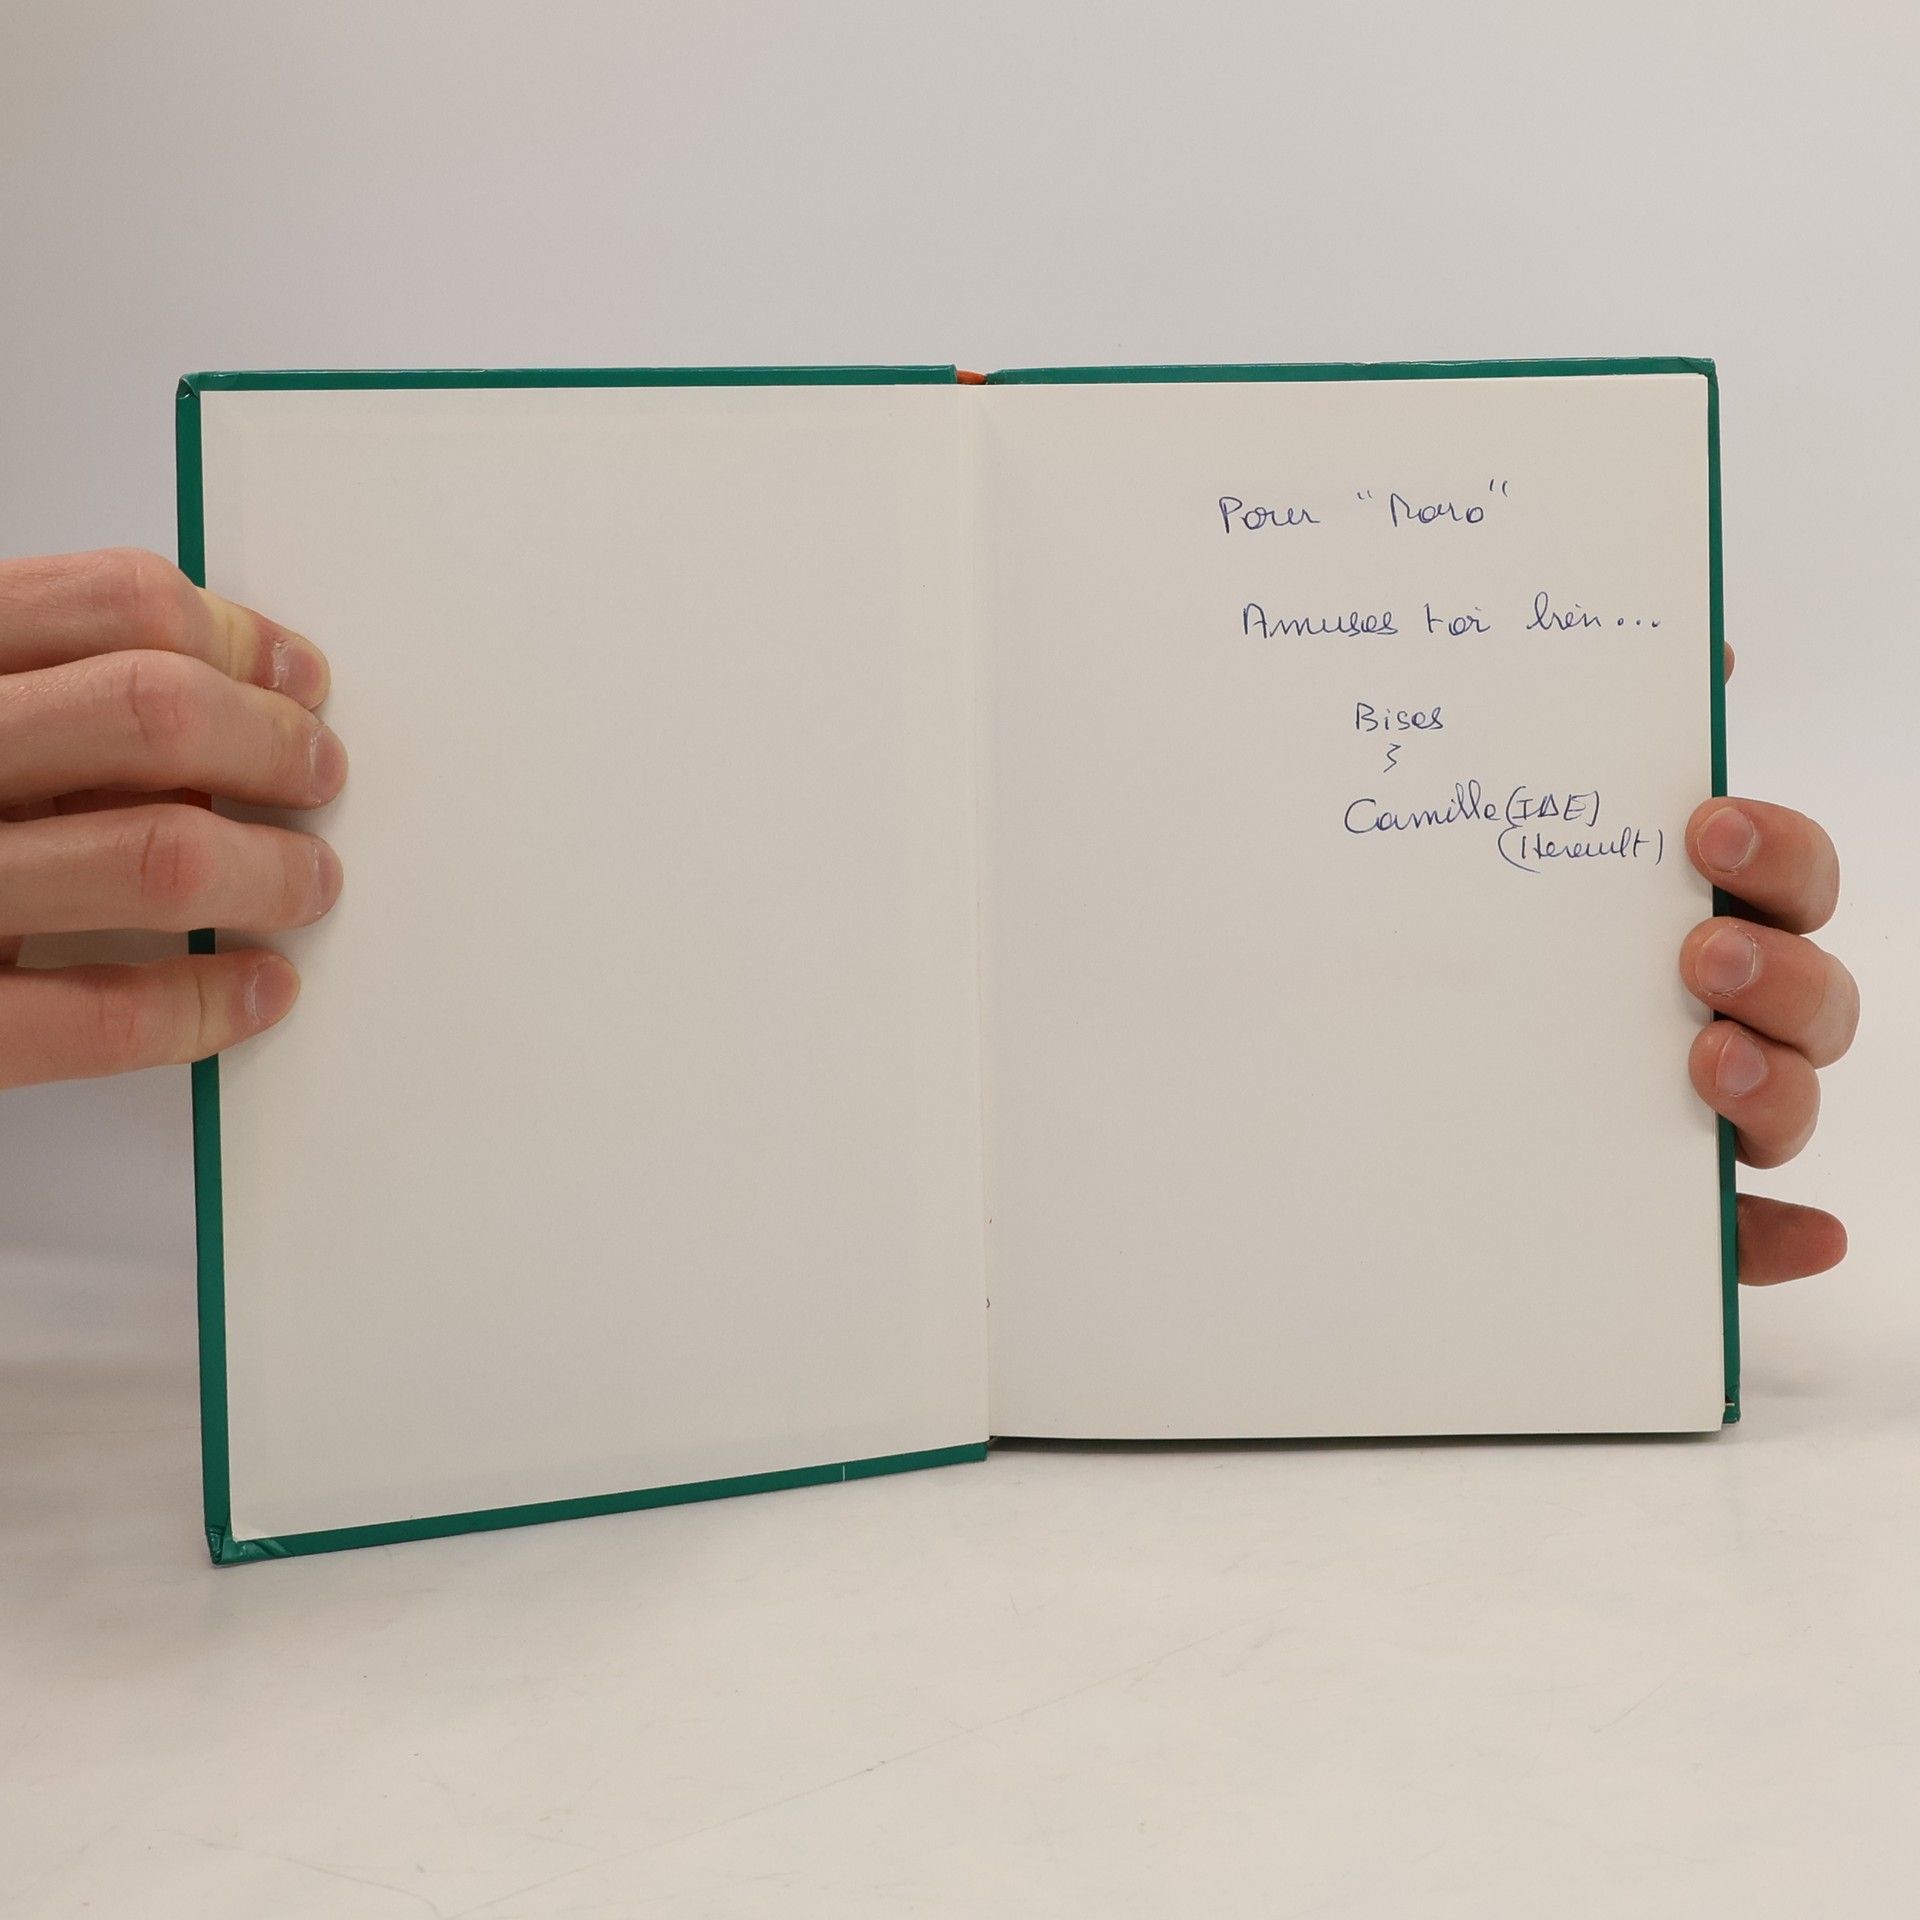 Pour " "
Amuses toi bien...
Bises
3
Camille (IDE)
(Herault)